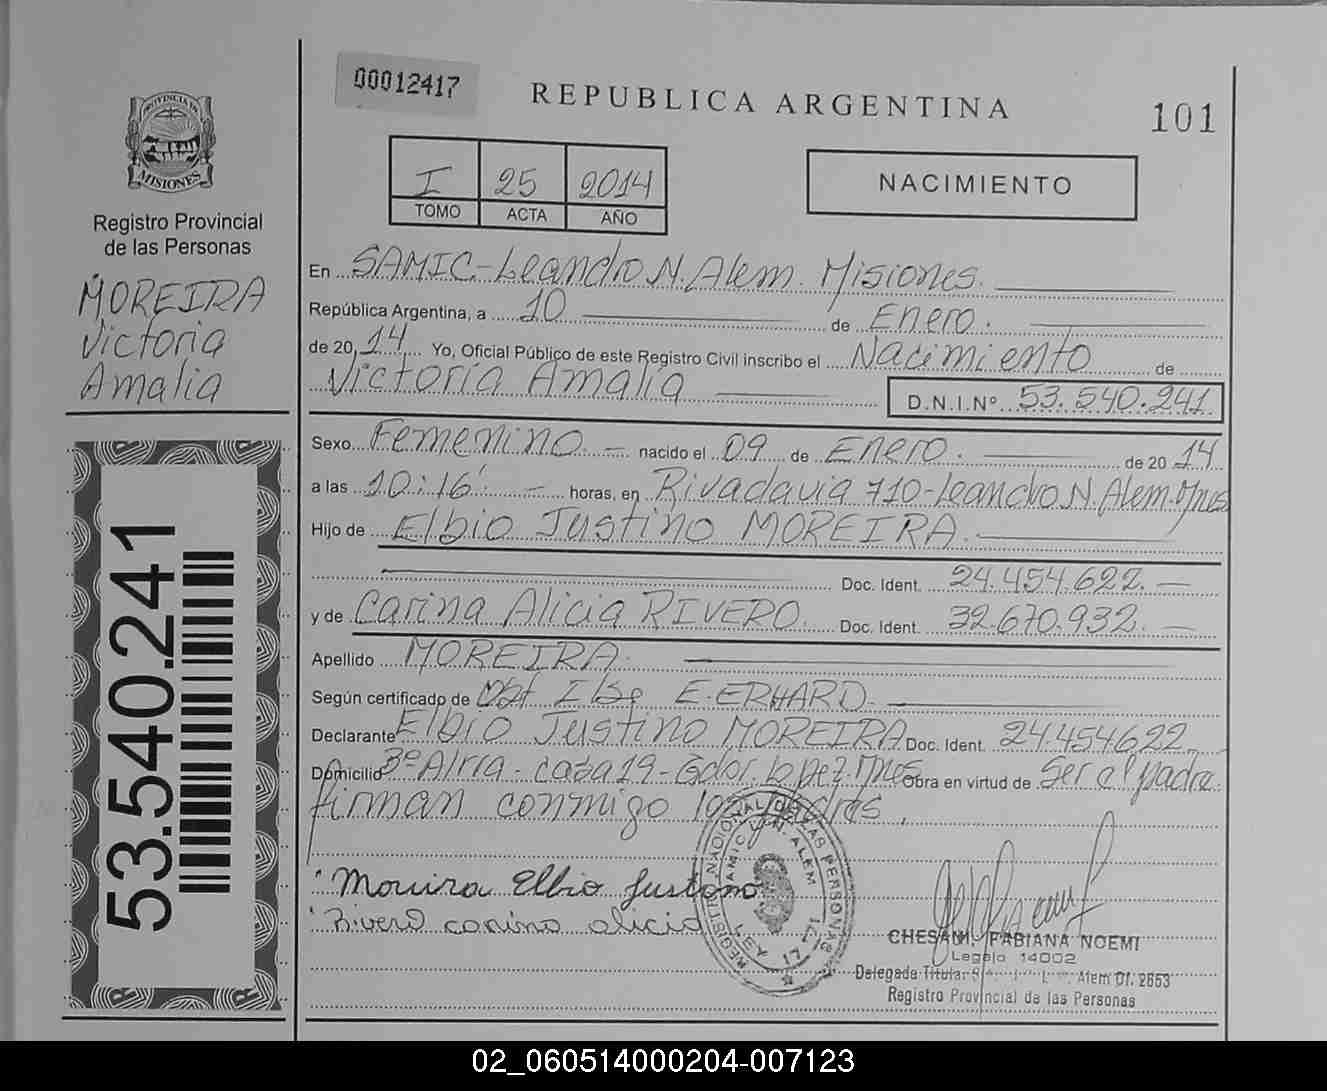 00012417
REPUBLICA ARGENTINA
101
PROVINCIA DE
MISIONES
Registro Provincial
de las Personas
MOREIRA
Victoria
Amalia
53.540.241
I 25 2014
TOMO ACTA AÑO
NACIMIENTO
En SAMIC-Leandro N. Alem. Misiones.
República Argentina, a 10 de Enero.
de 20 14 Yo, Oficial Público de este Registro Civil inscribo el Nacimiento de
Victoria Amalia
D.N.I.Nº 53.540.241.
Sexo Femenino. nacido el 09 de Enero. de 20 14
a las 10:16' horas, en Rivadavia 710-Leandro N. Alem.Mnes
Hijo de Elbio Justino MOREIRA.
Doc. Ident. 24.454.622.
y de Carina Alicia RIVERO. Doc. Ident. 32.670.932.
Apellido MOREIRA.
Según certificado de Obt Ilse E. ERHARD.
Declarante Elbio Justino MOREIRA Doc. Ident. 24.454.622
Domicilio casa 19-Gdor. Lopez-Mnes Obra en virtud de Ser el padre.
firman conmigo los padres.
Moreira Elbio Justino
Rivero carina alicia
REGISTRO NACIONAL DE LAS PERSONAS
SAMIC L.N. ALEM
LEY 17.671
CHESANI, FABIANA NOEMI
Legajo 14002
Delegada Titular Alem Of. 2653
Registro Provincial de las Personas
02_060514000204-007123